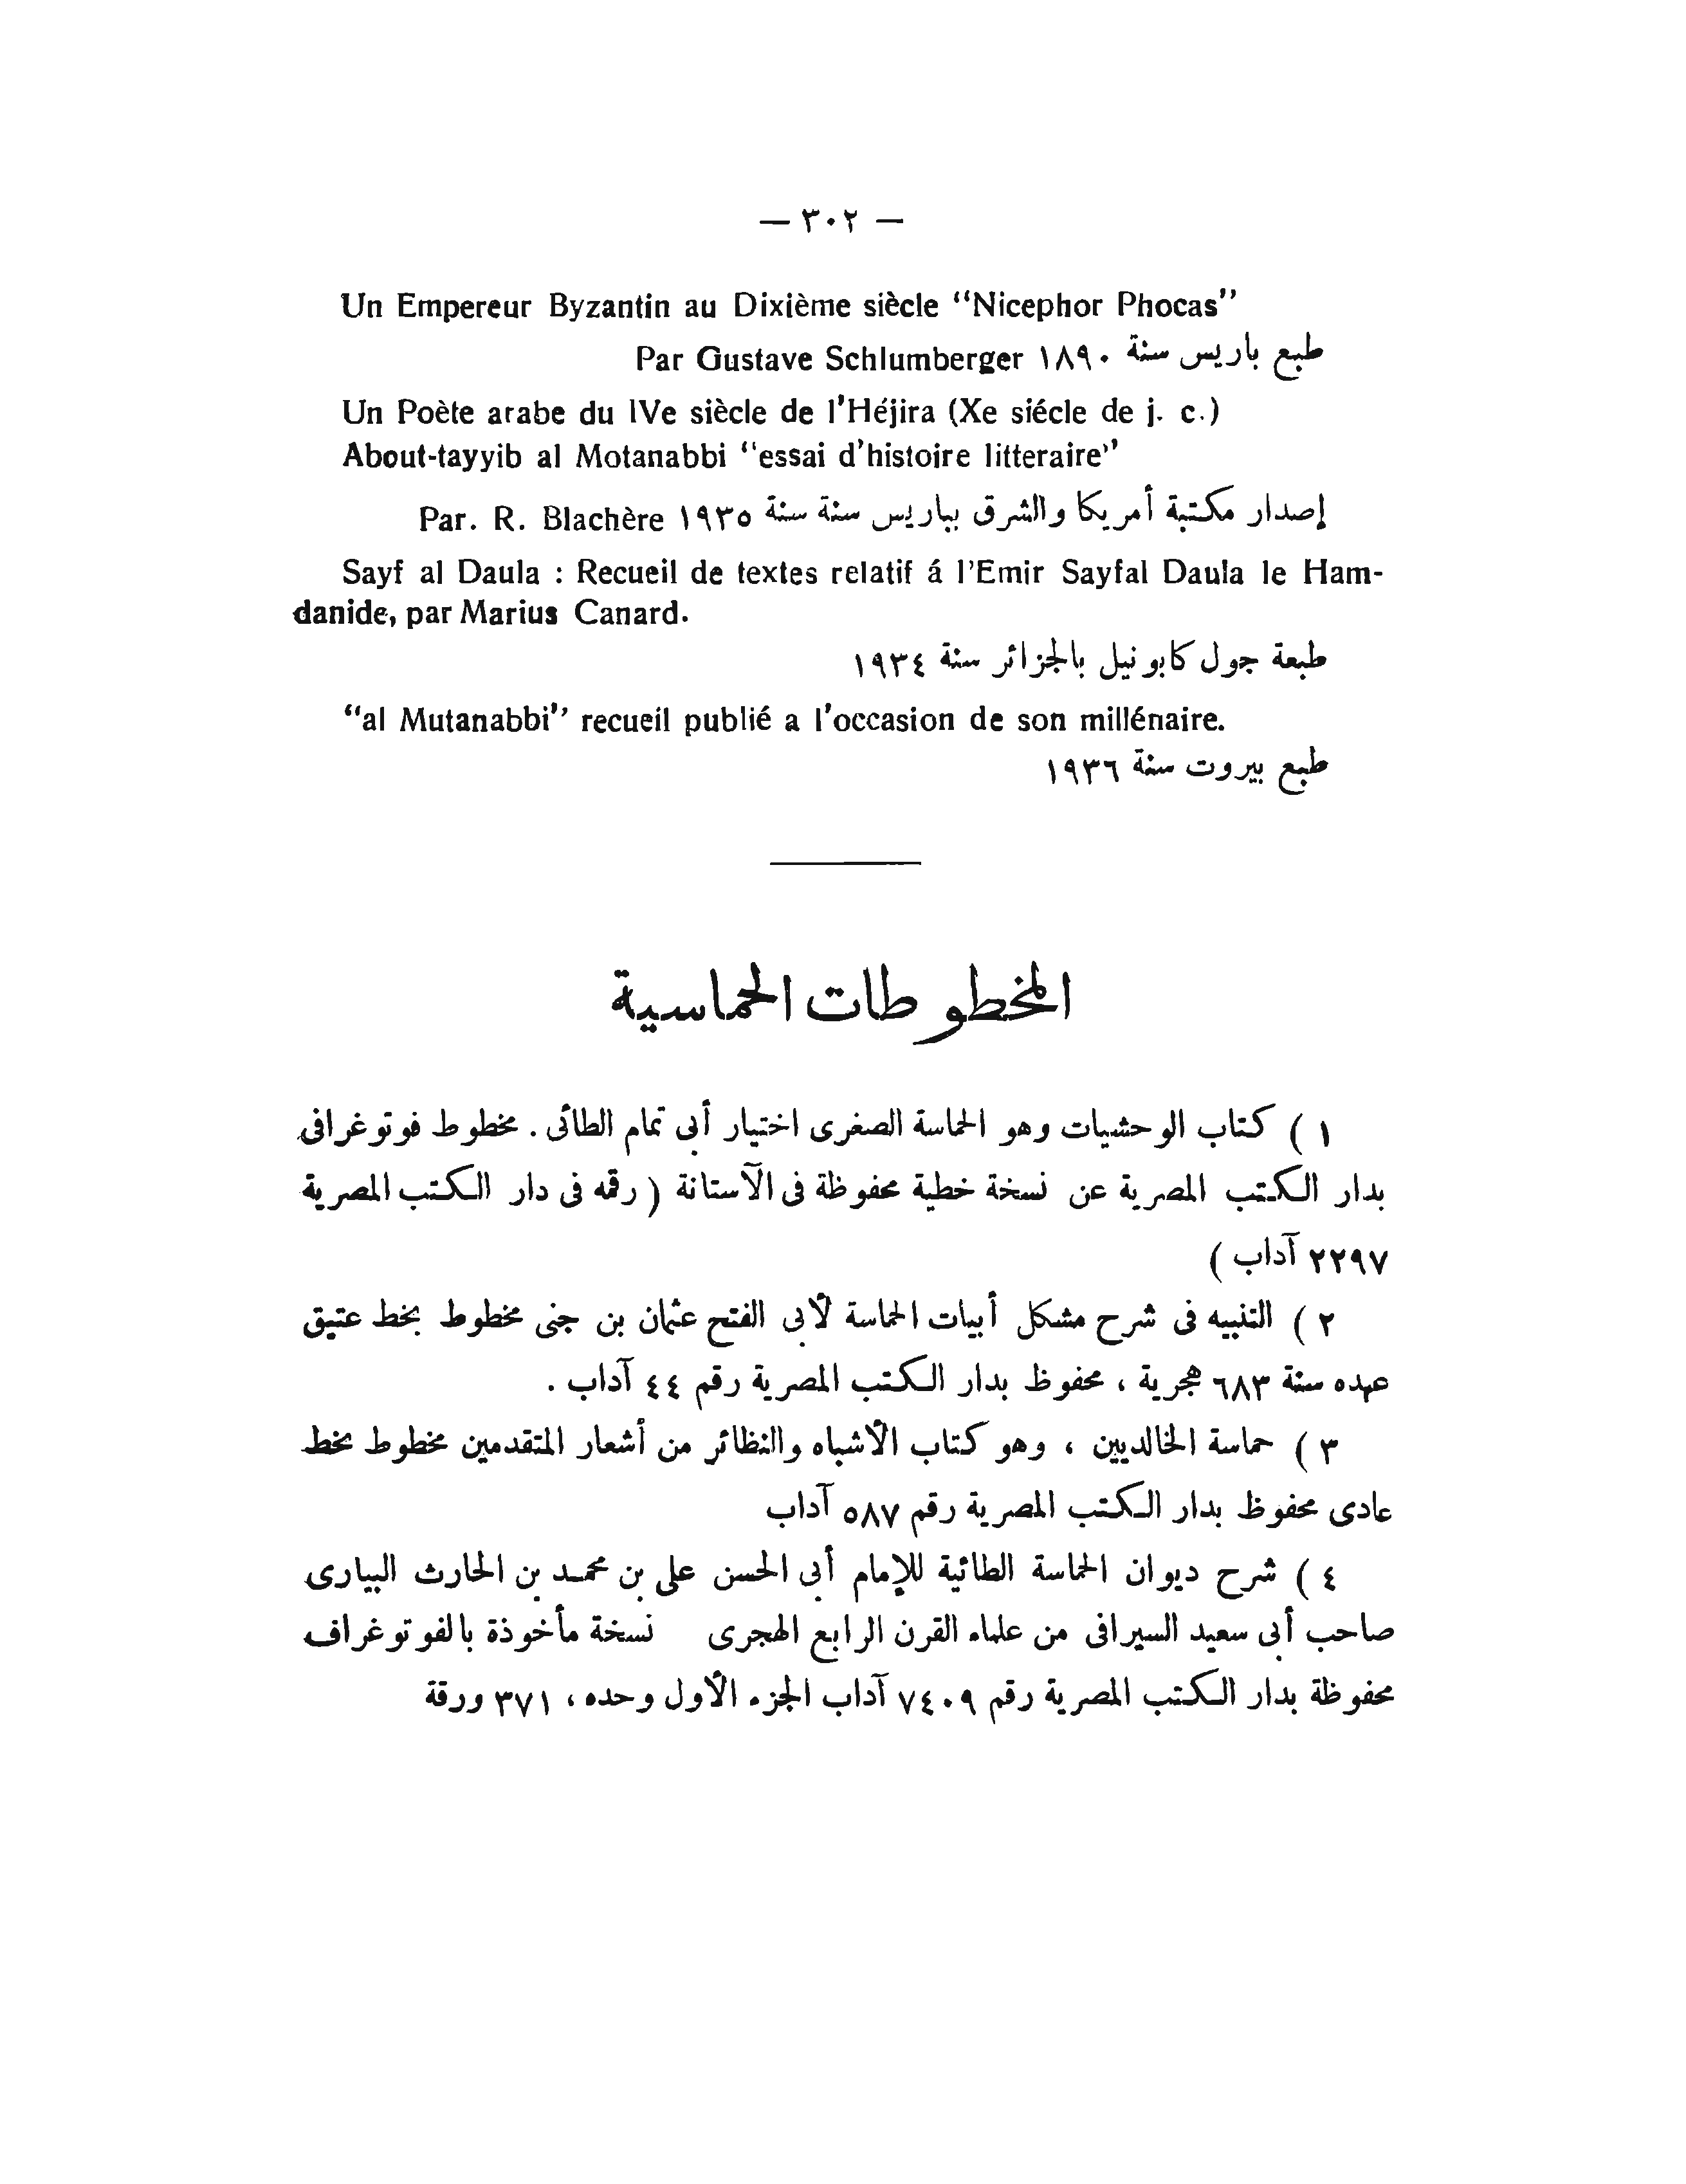 — ٣٠٢ —
Un Empereur Byzantin au Dixième siècle "Nicephor Phocas"
Par Gustave Schlumberger طبع باريس سنة ١٨٩٠
Un Poète arabe du IVe siècle de l'Héjira (Xe siécle de j. c.)
About-tayyib al Motanabbi "essai d'histoire litteraire"
Par. R. Blachère إصدار مكتبة أمريكا والشرق بباريس سنة سنة ١٩٣٥
Sayf al Daula : Recueil de textes relatif á l'Emir Sayfal Daula le Ham-
danide, par Marius Canard.
طبعة جول كابونيل بالجزائر سنة ١٩٣٤
"al Mutanabbi" recueil publié a l'occasion de son millénaire.
طبع بيروت سنة ١٩٣٦
المخطوطات الحماسية
١ ) كتاب الوحشيات وهو الحماسة الصغرى اختيار أبى تمام الطائى . مخطوط فوتوغرافى
بدار الكتب المصرية عن نسخة خطية محفوظة فى الآستانة ( رقمه فى دار الكتب المصرية
٢٢٩٧ آداب )
٢ ) التنبيه فى شرح مشكل أبيات الحماسة لأبى الفتح عثمان بن جنى مخطوط بخط عتيق
عهده سنة ٦٨٣ هجرية ، محفوظ بدار الكتب المصرية رقم ٤٤ آداب .
٣ ) حماسة الخالديين ، وهو كتاب الأشباه والنظائر من أشعار المتقدمين مخطوط بخط
عادى محفوظ بدار الكتب المصرية رقم ٥٨٧ آداب
٤ ) شرح ديوان الحماسة الطائية للإمام أبى الحسن على بن محمد بن الحارث البيارى
صاحب أبى سعيد السيرافى من علماء القرن الرابع الهجرى نسخة مأخوذة بالفوتوغراف
محفوظة بدار الكتب المصرية رقم ٧٤٠٩ آداب الجزء الأول وحده ، ٣٧١ ورقة